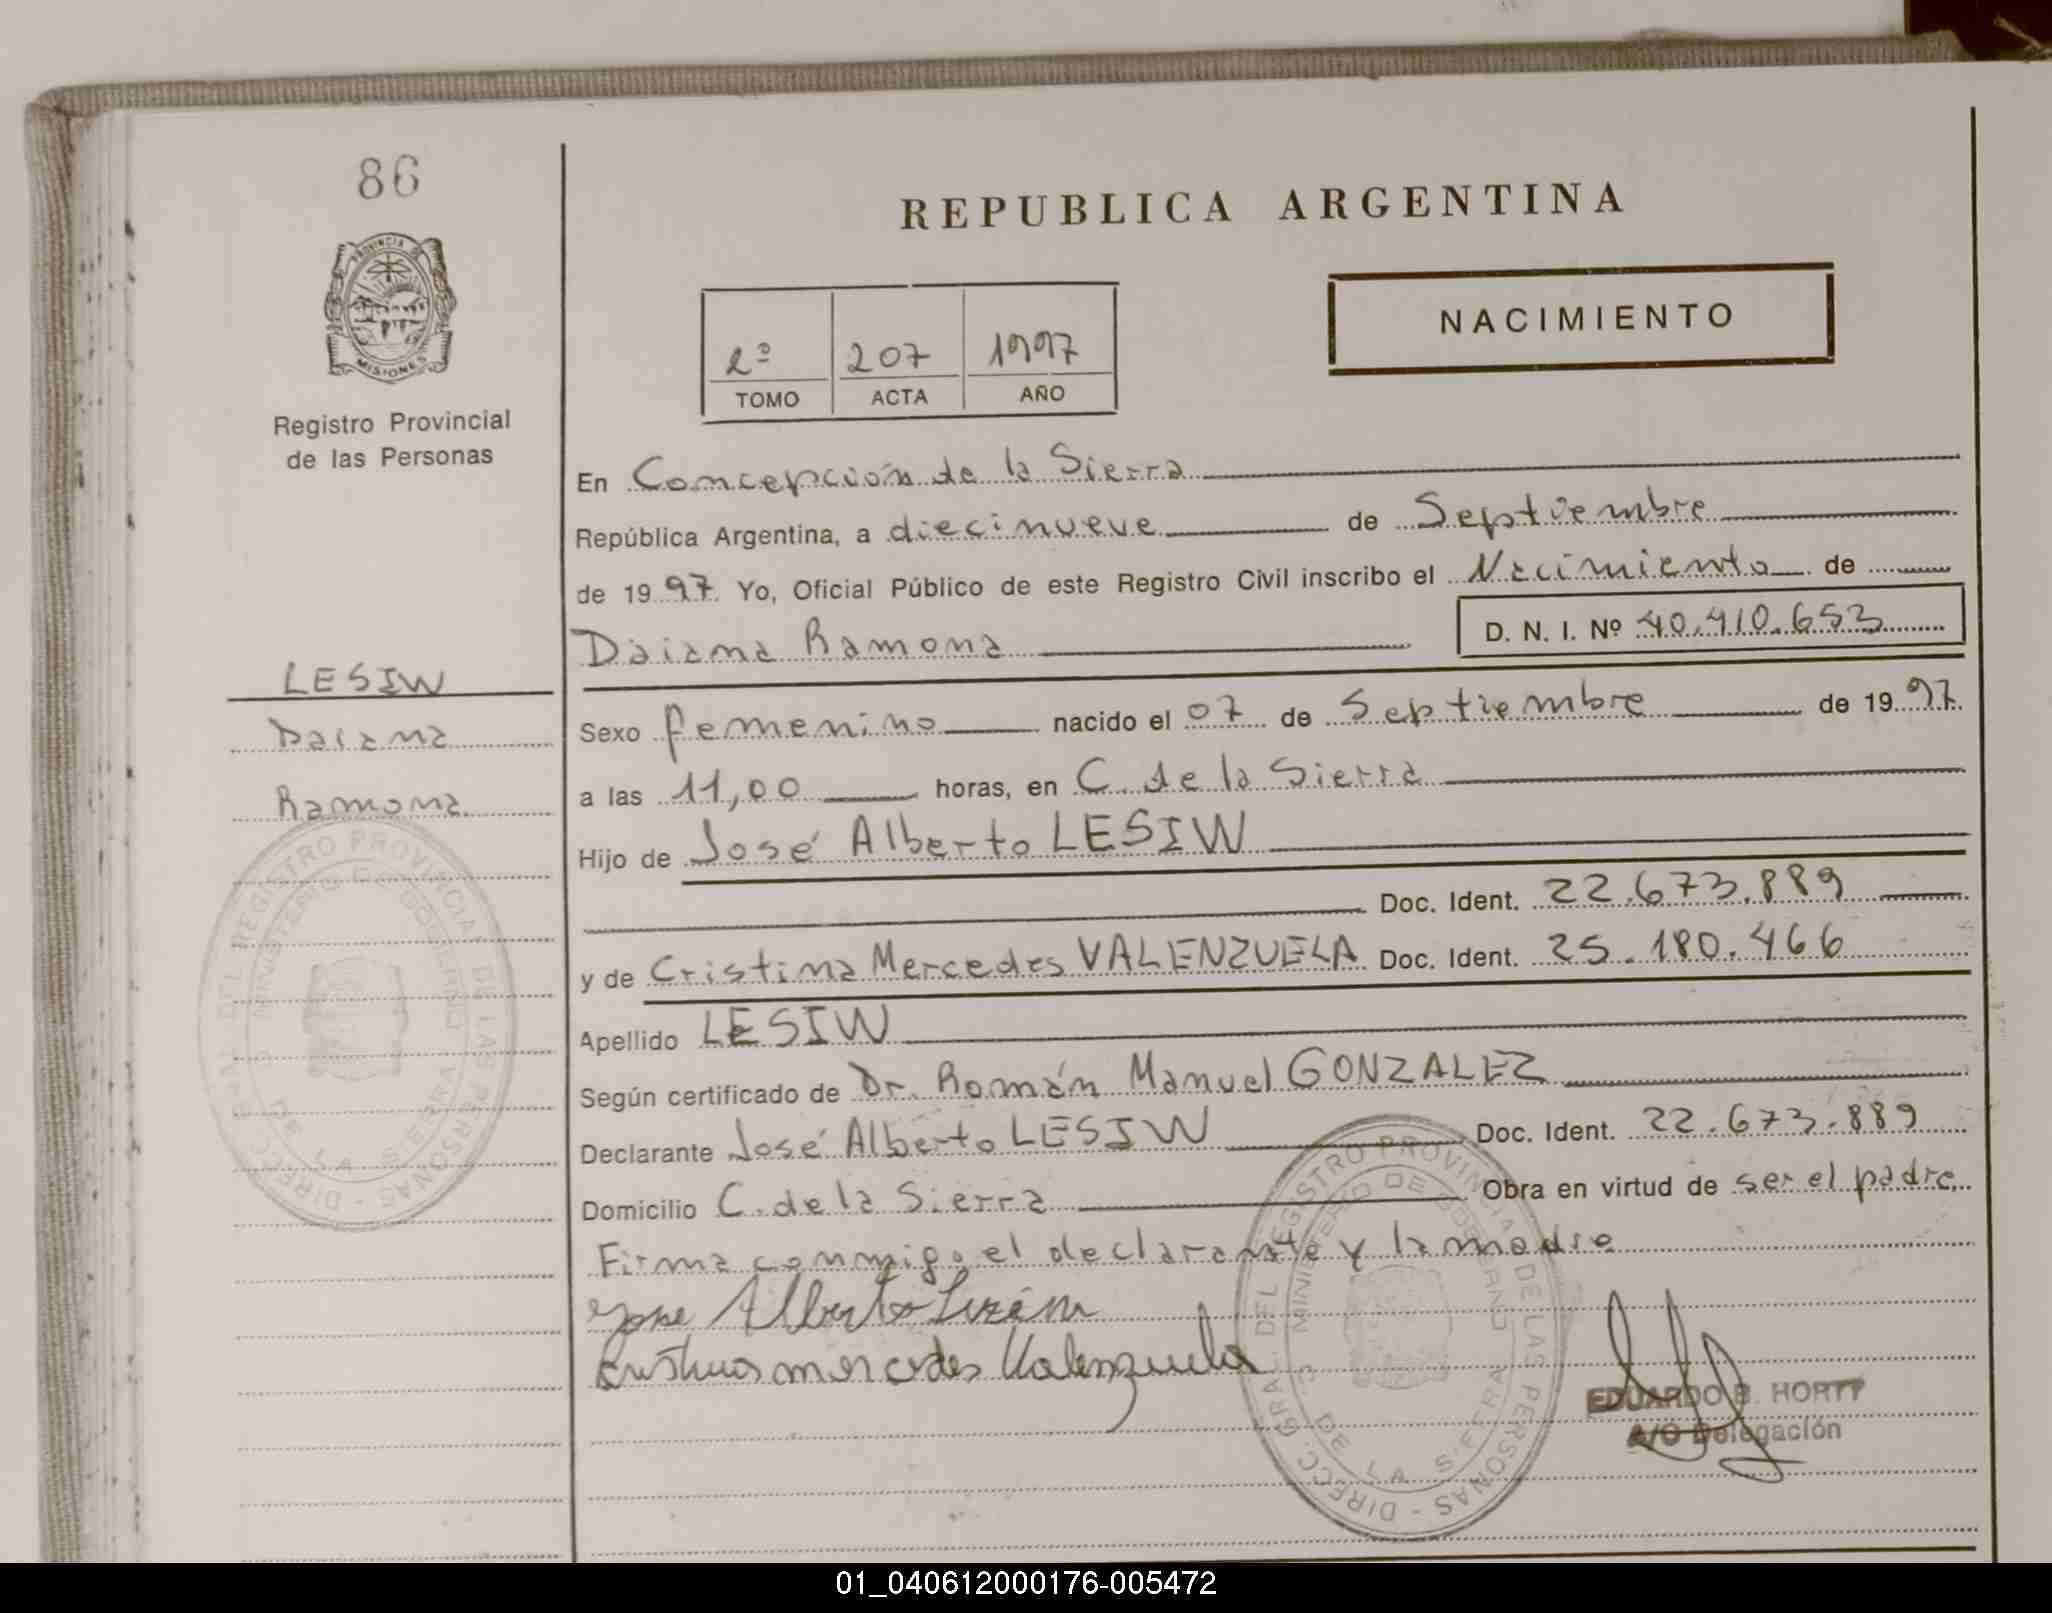 86
REPUBLICA ARGENTINA
PROVINCIA DE
MISIONES
Registro Provincial
de las Personas
NACIMIENTO
2º 207 1997
TOMO ACTA AÑO
En Concepción de la Sierra
República Argentina, a diecinueve de Septiembre
de 1997. Yo, Oficial Público de este Registro Civil inscribo el Nacimiento de
Daiana Ramona D. N. I. Nº 40.410.653
LESIW
Daiana
Ramona
Sexo femenino nacido el 07 de Septiembre de 1997.
a las 11,00 horas, en C. de la Sierra
Hijo de José Alberto LESIW
Doc. Ident. 22.673.889
y de Cristina Mercedes VALENZUELA Doc. Ident. 25.180.466
Apellido LESIW
Según certificado de Dr. Román Manuel GONZALEZ
Declarante José Alberto LESIW Doc. Ident. 22.673.889
Domicilio C. de la Sierra Obra en virtud de ser el padre.
Firma conmigo el declarante y la madre
Jose Alberto
Cristina mercedes Valenzuela
EDUARDO B.
A/C Delegación
DIRECC. GRAL. DEL REGISTRO PROVINCIAL DE LAS PERSONAS
MINISTERIO DE GOBIERNO
C. DE LA SIERRA
DIRECC. GRAL. DEL REGISTRO PROVINCIAL DE LAS PERSONAS
MINISTERIO DE GOBIERNO
C. DE LA SIERRA
01_040612000176-005472